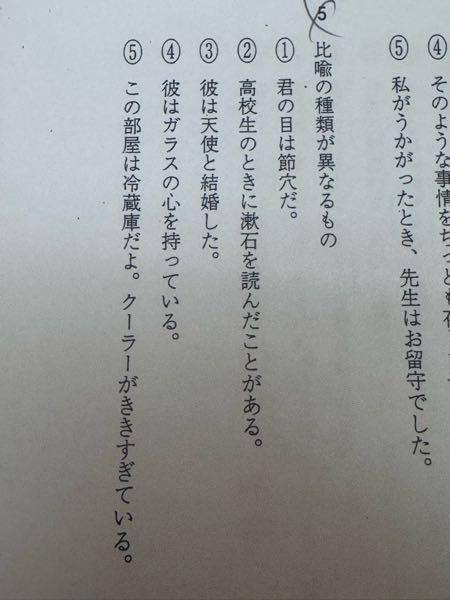 ④ そのような事情をちっとも
⑤ 私がうかがったとき、先生はお留守でした。
5 比喩の種類が異なるもの
① 君の目は節穴だ。
② 高校生のときに漱石を読んだことがある。
③ 彼は天使と結婚した。
④ 彼はガラスの心を持っている。
⑤ この部屋は冷蔵庫だよ。クーラーがききすぎている。